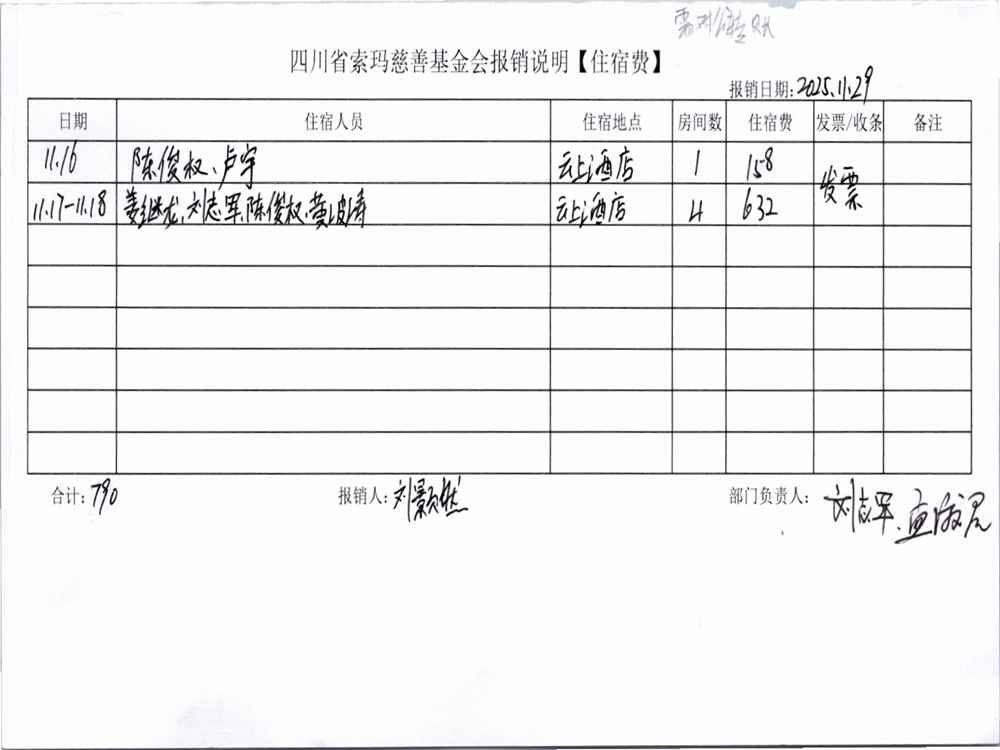 需对公转账
四川省索玛慈善基金会报销说明【住宿费】
报销日期:2025.11.29
日期 住宿人员 住宿地点 房间数 住宿费 发票/收条 备注
11.16 陈俊权、卢宇 云上酒店 1 158 发票
11.17-11.18 姜继龙、刘志军、陈俊权、黄波涛 云上酒店 4 632
合计:790 报销人:刘颢燃 部门负责人:刘志军、孟